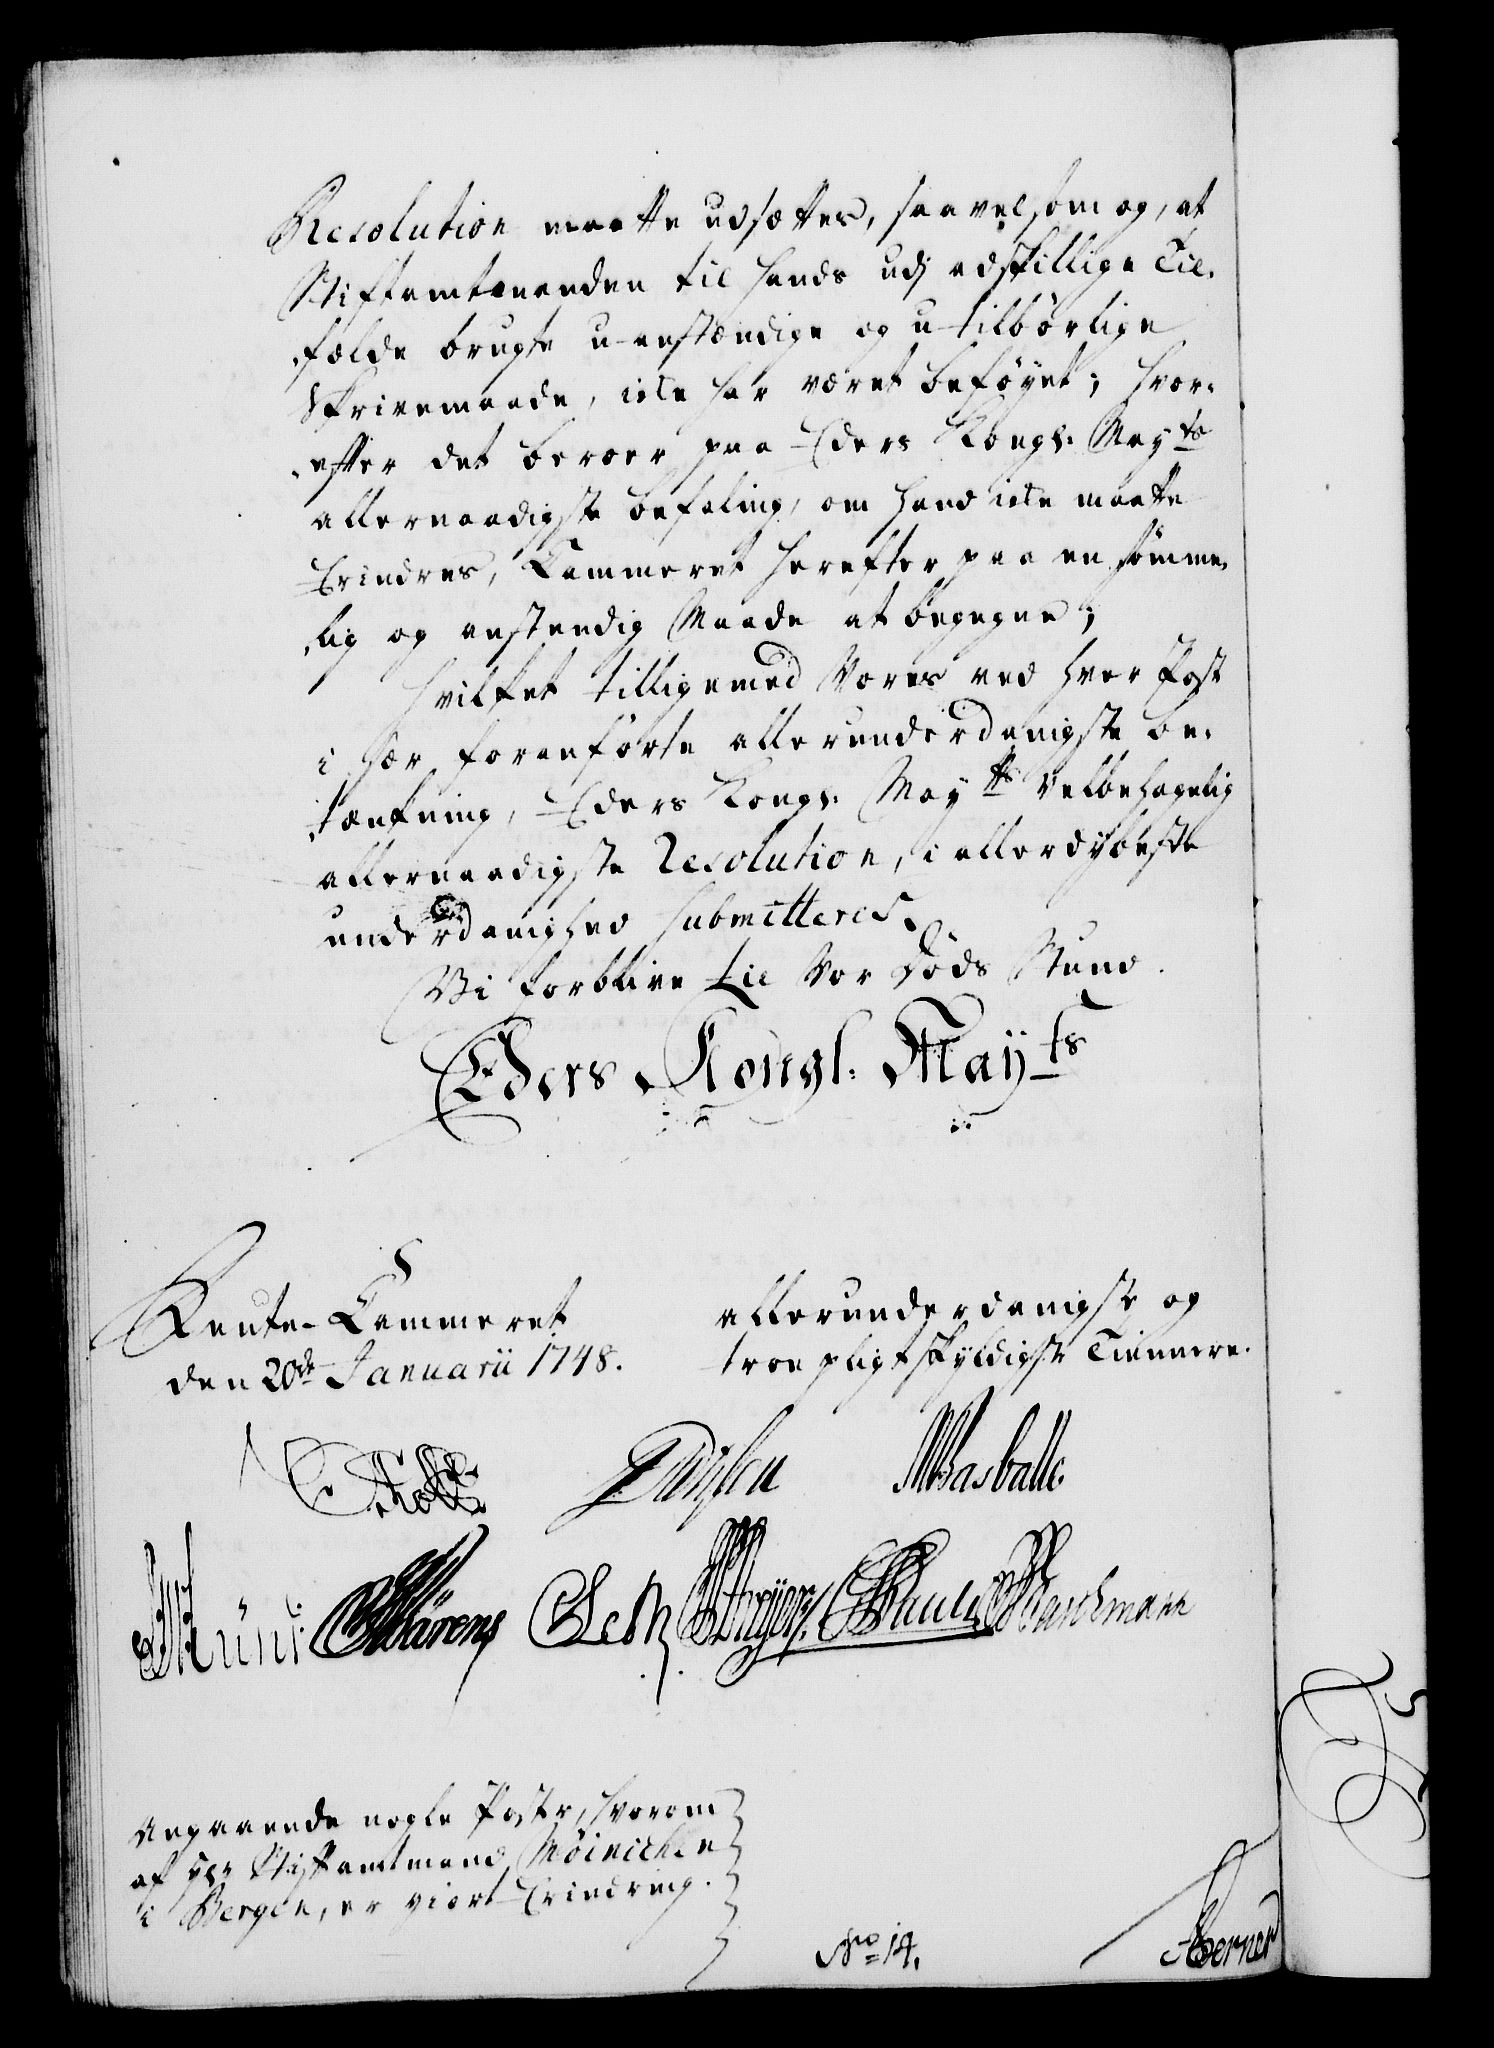 Resolution maatte udsættes, saavelsom og, at
Stiftamtmanden til hands udj adskillige Til-
fælde brugte u-anstændige og u-tilbørlige
Skrivemaade, icke har været beføyet; hvor-
efter det beroer paa Eders Kongl: May.ts
allernaadigste befaling, om hand icke maatte
Erindres, Cammeret herefter paa en sømme-
lig og anstendig Maade at begegne;
Hvilket tilligemed Vores ved hver Post
i sær foranførte allerunderdanigste be-
tænkning, Eders Kongl: Mayts Velbehagelig
allernaadigste Resolution, i allerdybeste
underdanighed submitteres.
Vi forblive til Vor Døds Stund.
Eders Kongl: Mayts
Rente-Cammeret
den 20de Januarii 1748.
allerunderdanigste og
troe pligtskyldigste Tiennere.
Angaaende nogle Poster, hvorom
af Hr Stiftamtmand Møinichen
i Bergen, er giort Erindring.
No 14.